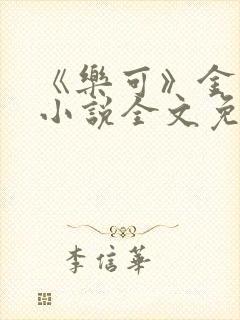 《樂可》金
小說全文免
李信華